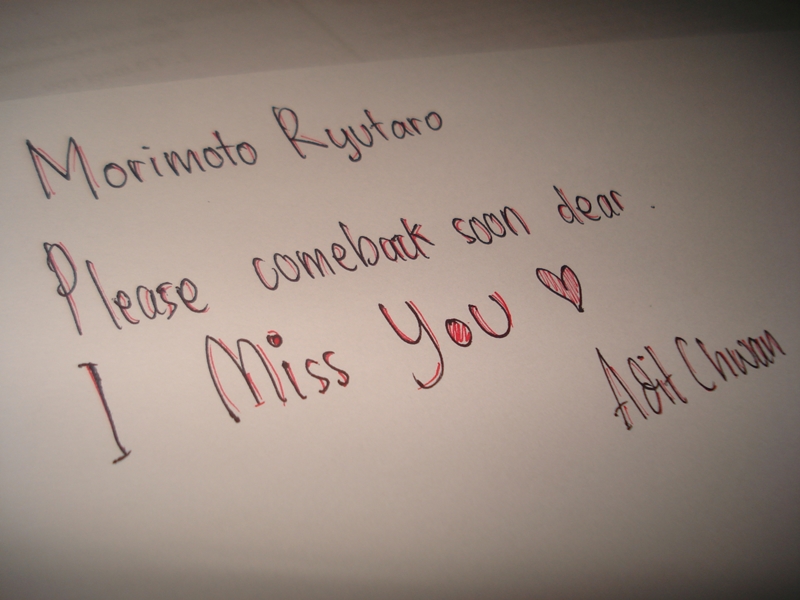 Morimoto Ryutaro
Please comeback soon dear.
I Miss You ♥
Adit Chwan